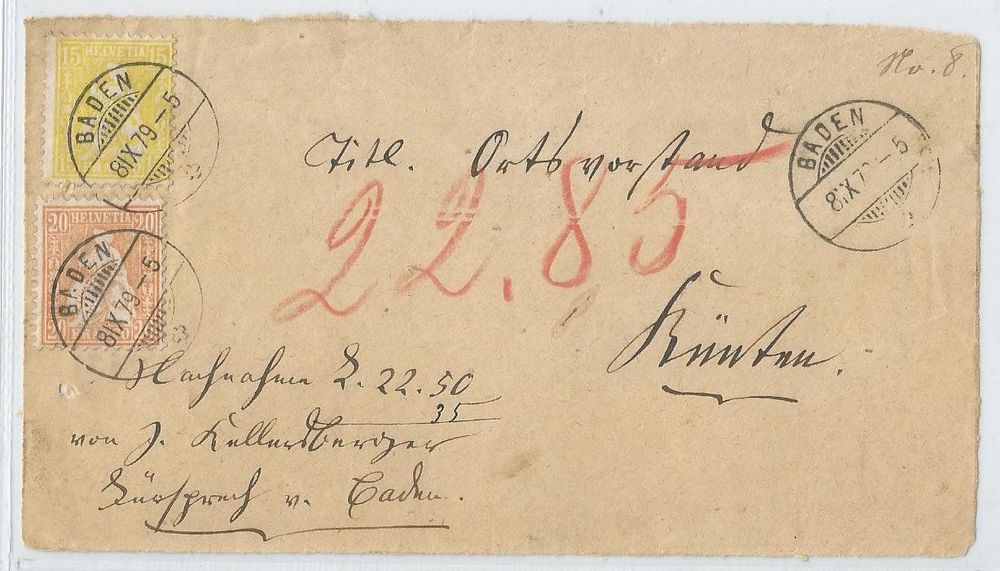 No. 8.
15 HELVETIA 15
BADEN
8 IX 79 – 5
BADEN
8 IX 79 – 5
Titl. Ortsvorstand
22,85
20 HELVETIA 20
BADEN
8 IX 79 – 5
20 20
Künten.
Nachnahme 22.50
35
von J. Kellersberger
Fürsprech v. Baden.